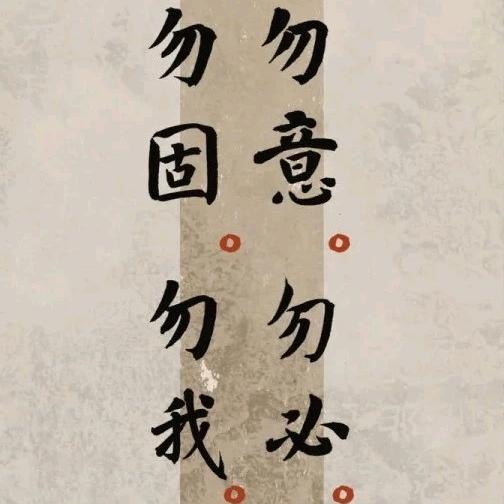 勿意。勿必。
勿固。勿我。